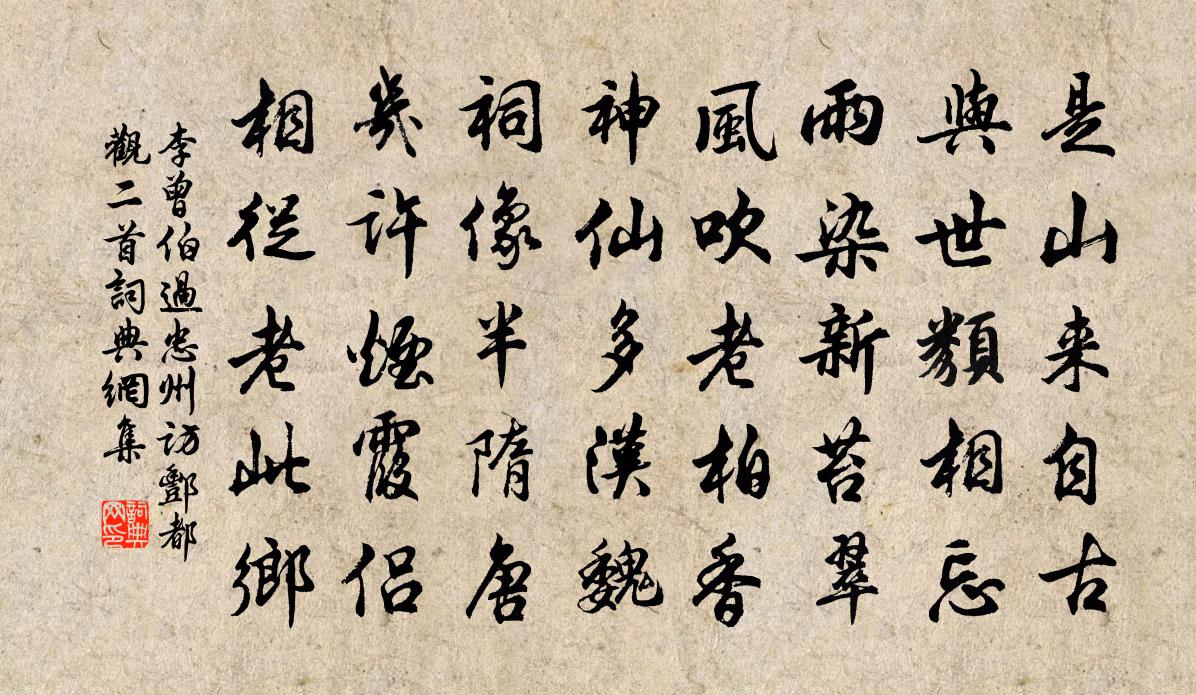 是山来自古
與世類相忘
雨染新苔翠
風吹老柏香
神仙多漢魏
祠像半隋唐
幾許煙霞侣
相從老此鄉
李曾伯過忠州访酆都
觀二首詞典網集
詞典网印